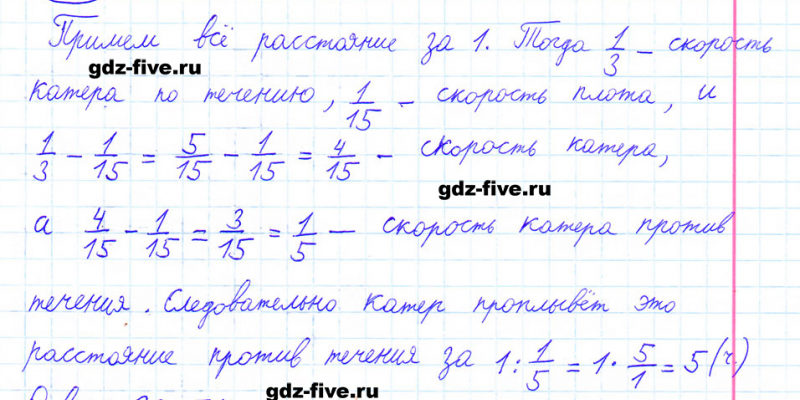 Примем всё расстояние за 1. Тогда 1/3 – скорость
gdz-five.ru
катера по течению, 1/15 – скорость плота, и
1/3 – 1/15 = 5/15 – 1/15 = 4/15 – скорость катера,
gdz-five.ru
а 4/15 – 1/15 = 3/15 = 1/5 – скорость катера против
течения. Следовательно катер проплывёт это
расстояние против течения за 1 : 1/5 = 1 · 5/1 = 5 (ч)
gdz-five.ru